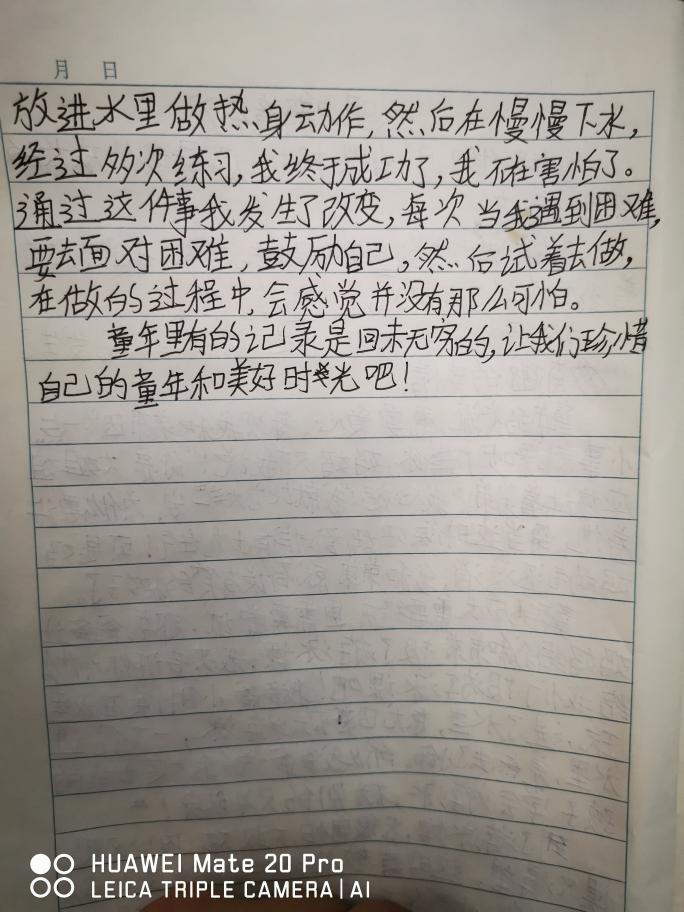 月 日
放进水里做热身云动作,然后在慢慢下水,
经过多次练习,我终于成功了,我不在害怕了。
通过这件事我发生了改变,每次当我遇到困难,
要去面对困难,鼓励自己,然后试着去做,
在做的过程中,会感觉并没有那么可怕。
童年里有的记录是回味无穷的,让我们珍惜
自己的童年和美好时光吧!
HUAWEI Mate 20 Pro
LEICA TRIPLE CAMERA | AI